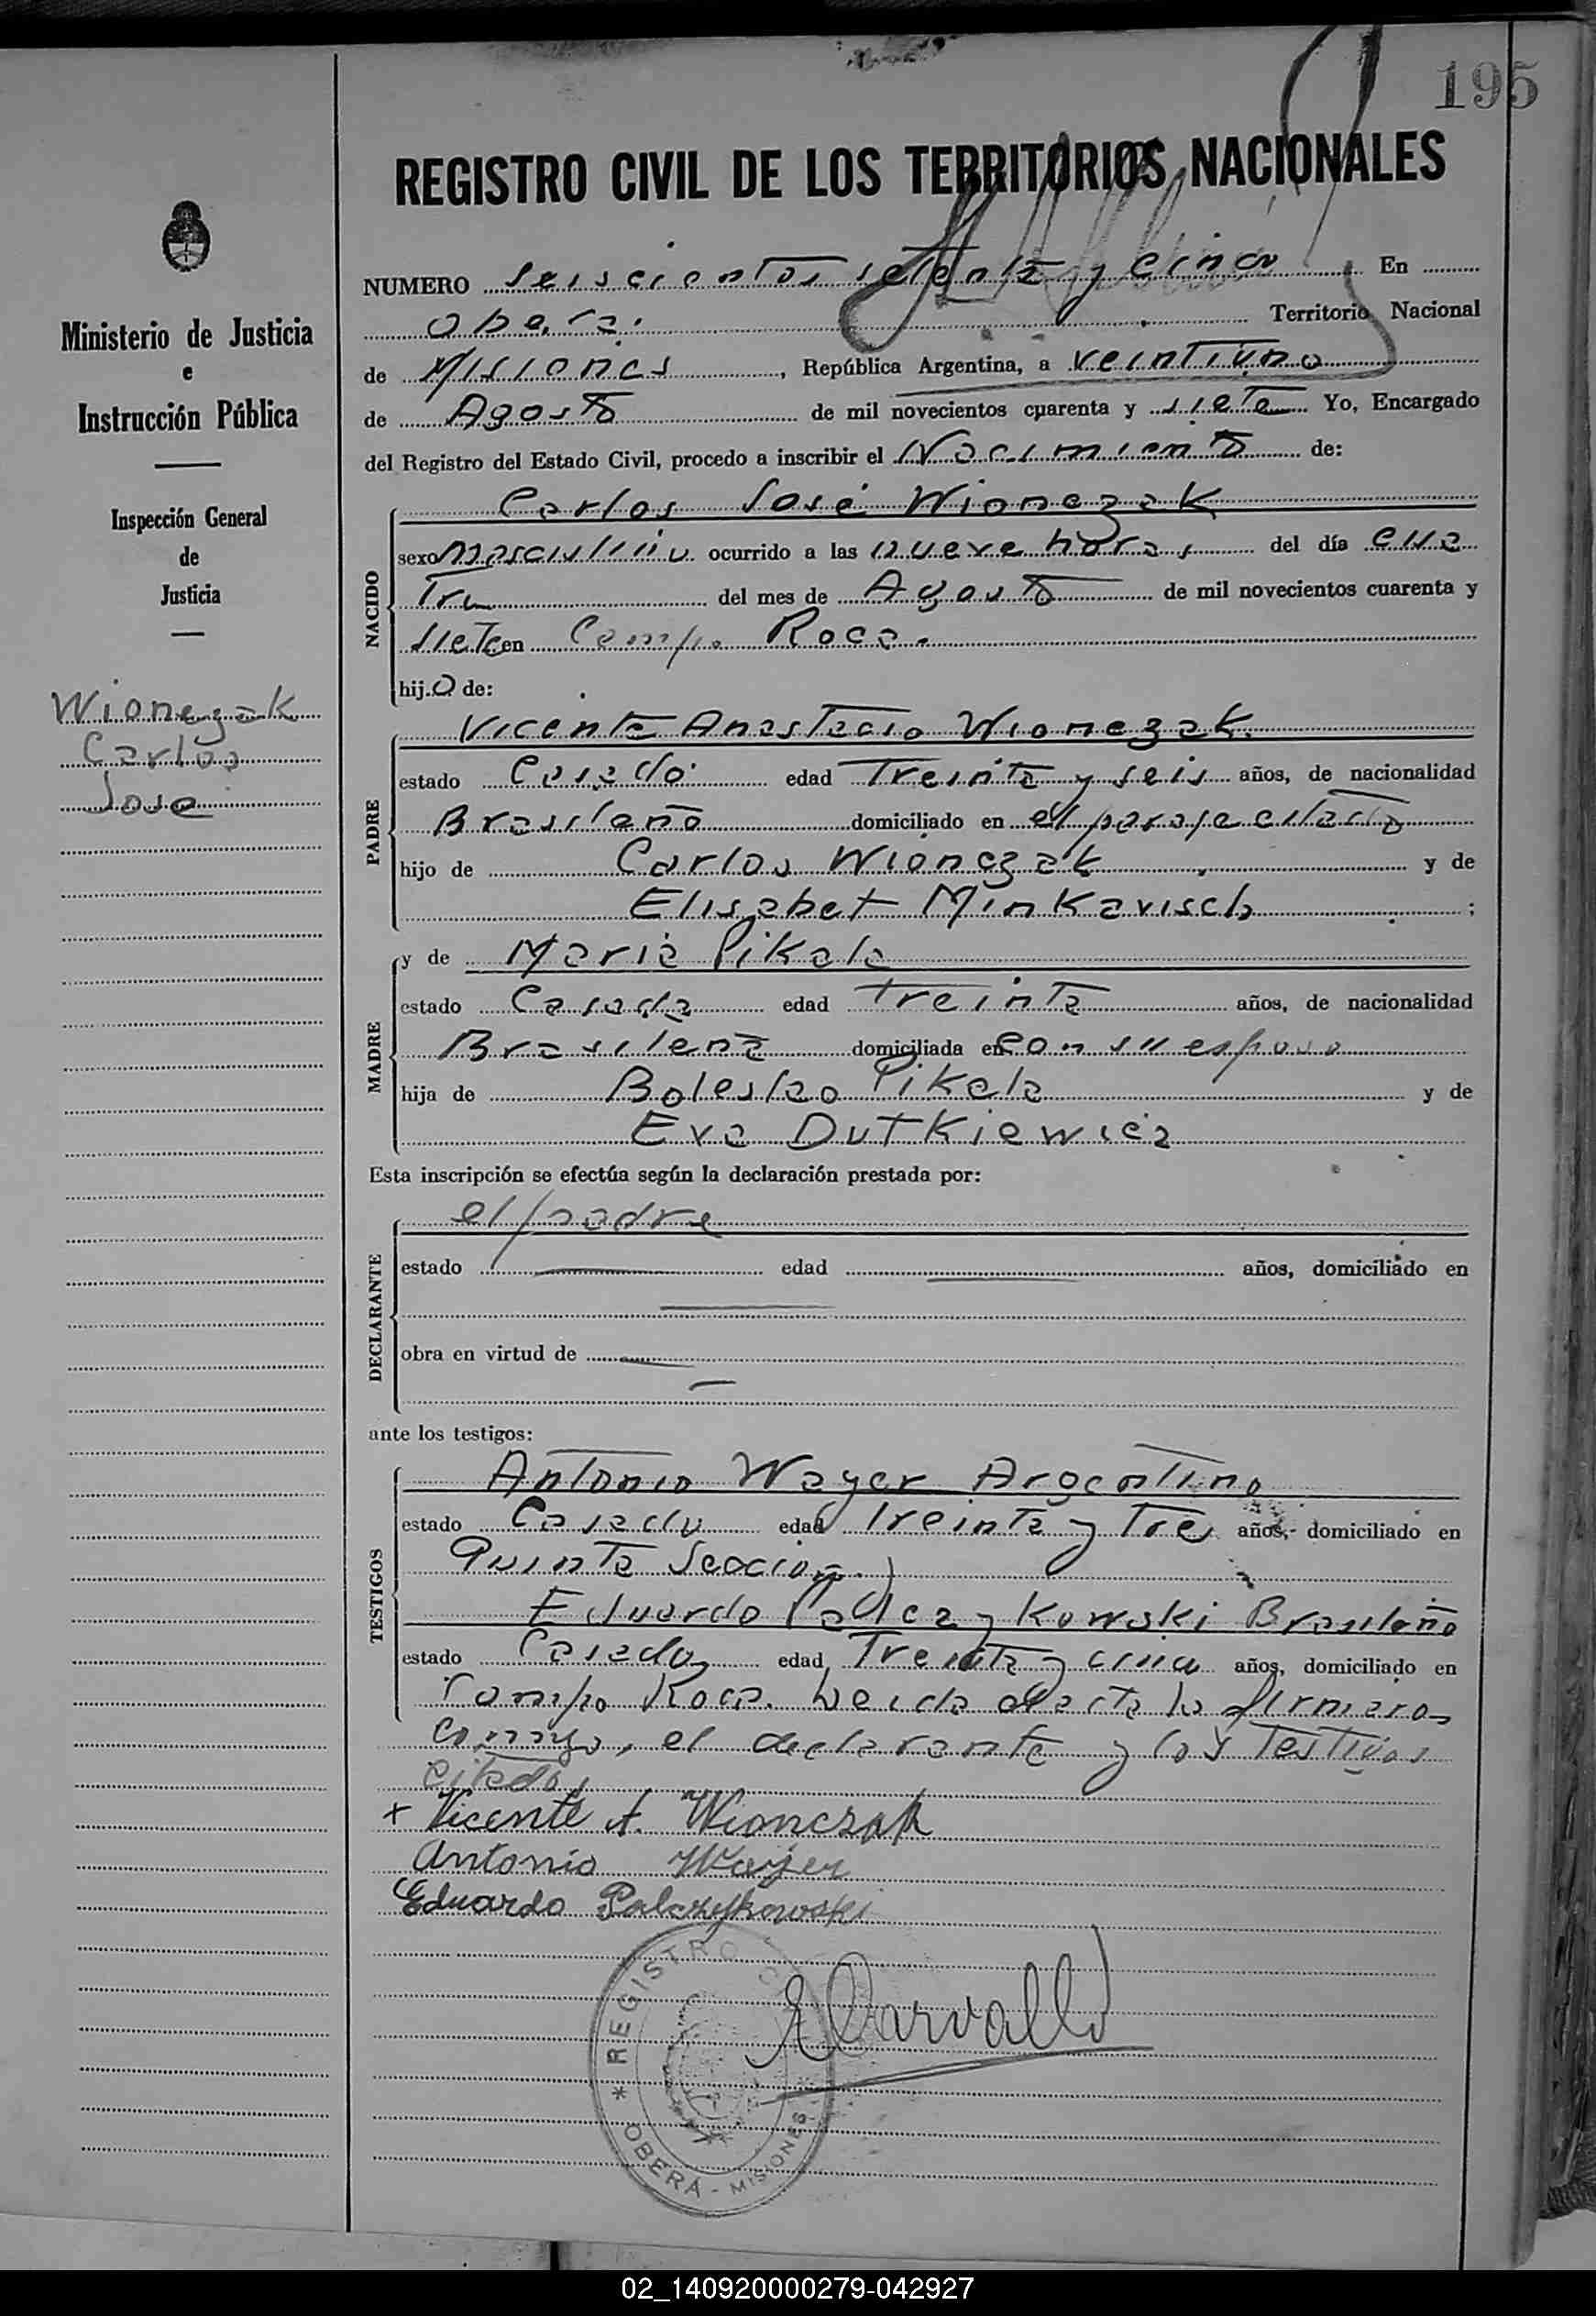 195
REGISTRO CIVIL DE LOS TERRITORIOS NACIONALES
Ministerio de Justicia
e
Instrucción Pública
Inspección General
de
Justicia
Wionczak
Carlos
José
NUMERO seiscientos setenta y cinco En
Oberá. Territorio Nacional
de Misiones, República Argentina, a veintiuno
de Agosto de mil novecientos cuarenta y siete Yo, Encargado
del Registro del Estado Civil, procedo a inscribir el Nacimiento de:
NACIDO
Carlos José Wionczak
sexo masculino ocurrido a las nueve horas del día cua
tro del mes de Agosto de mil novecientos cuarenta y
siete en Campo Roca.
hijo de:
PADRE
Vicente Anastacio Wionczak.
estado Casado edad Treinta y seis años, de nacionalidad
Brasileño domiciliado en el paraje citado
hijo de Carlos Wionczak y de
Elisabet Minkavisch;
MADRE
y de Maria Pikala
estado Casada edad treinta años, de nacionalidad
Brasilena domiciliada en con su esposo
hija de Boleslao Pikala y de
Eva Dutkiewicz
Esta inscripción se efectúa según la declaración prestada por:
DECLARANTE
el padre
estado edad años, domiciliado en
obra en virtud de
ante los testigos:
TESTIGOS
Antonio Wayer Argentino
estado Casado edad treinta y tres años, domiciliado en
Quinta Seccion
Eduardo Palczykowski Brasileño
estado Casado edad Treinta y cinco años, domiciliado en
Campo Roca. Leida el acta la firmaron
conmigo, el declarante y los testigos
citados
+ Vicente A. Wionczak
Antonio Wayer
Eduardo Palczykowski
ECarvallo
* REGISTRO C
OBERÁ - MISIONES
02_140920000279-042927